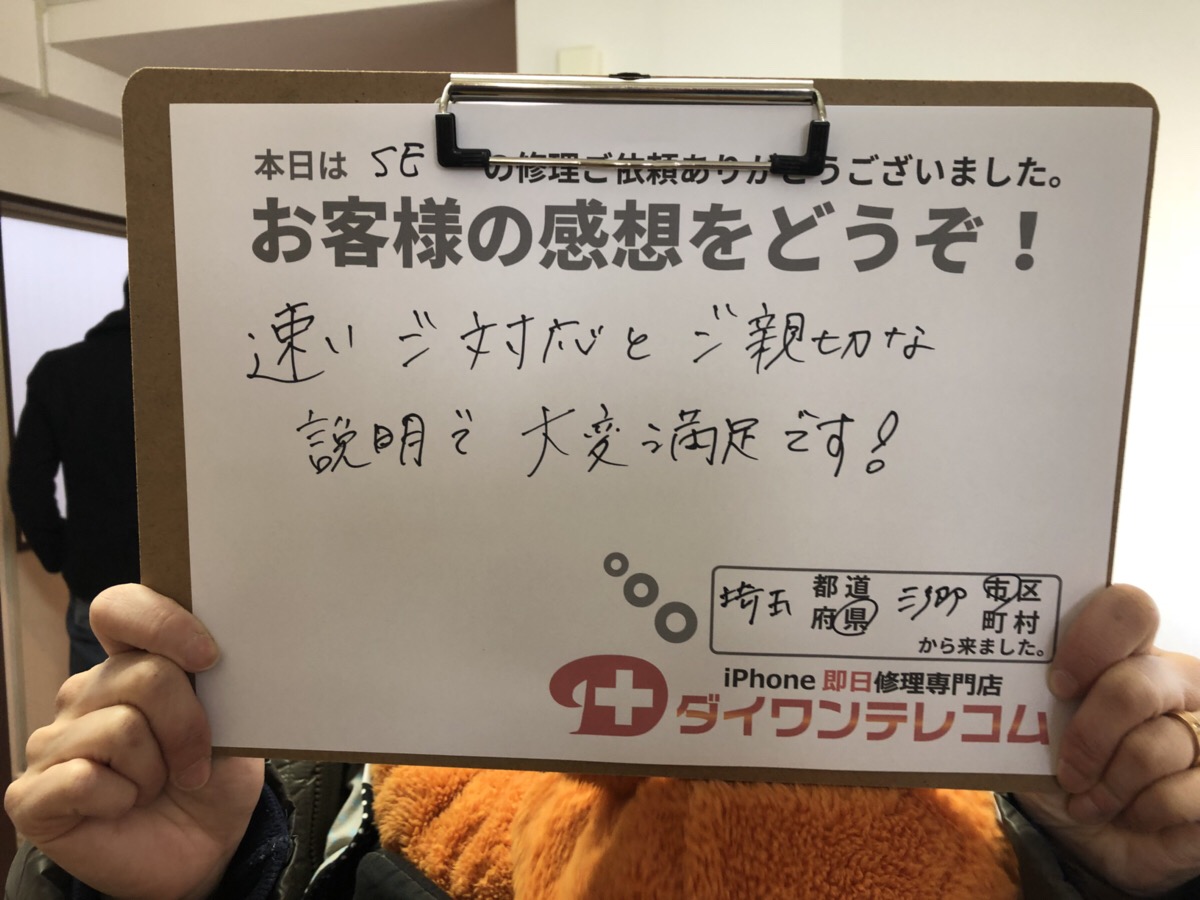 本日は SE の修理ご依頼ありがとうございました。
お客様の感想をどうぞ！
速いご対応とご親切な
説明で大変満足です！
埼玉 都道府県 三郷 市区町村
から来ました。
iPhone 即日修理専門店
ダイワンテレコム